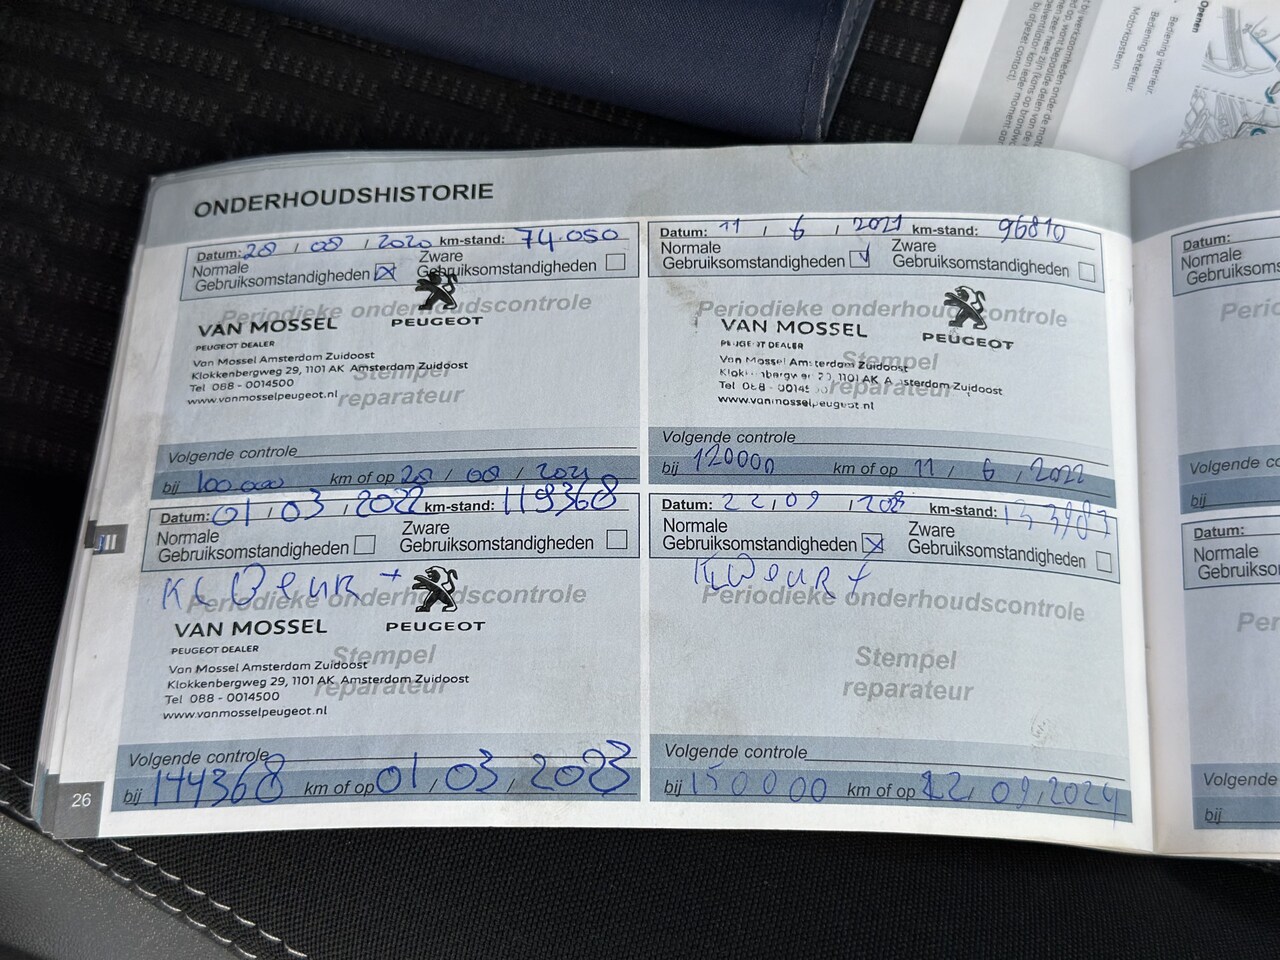 Openen
Bediening interieur.
Bediening exterieur.
Motorkapsteun.
ONDERHOUDSHISTORIE
Datum: 28 / 08 / 2020 km-stand: 74.050
Normale Gebruiksomstandigheden
Zware Gebruiksomstandigheden
Periodieke onderhoudscontrole
PEUGEOT
VAN MOSSEL
PEUGEOT DEALER
Van Mossel Amsterdam Zuidoost
Klokkenbergweg 29, 1101 AK Amsterdam Zuidoost
Tel 088 - 0014500
www.vanmosselpeugeot.nl
Stempel
reparateur
Volgende controle
bij 100.000 km of op 28 / 08 / 2021
Datum: 11 / 6 / 2021 km-stand: 96810
Normale Gebruiksomstandigheden
Zware Gebruiksomstandigheden
Periodieke onderhoudscontrole
PEUGEOT
VAN MOSSEL
PEUGEOT DEALER
Van Mossel Amsterdam Zuidoost
1101 AK Amsterdam Zuidoost
Tel 088 - 0014500
www.vanmosselpeugeot.nl
Stempel
reparateur
Volgende controle
bij 120000 km of op 11 / 6 / 2022
Datum: 01 / 03 / 2022 km-stand: 119368
Normale Gebruiksomstandigheden
Zware Gebruiksomstandigheden
KL Beurt +
Periodieke onderhoudscontrole
PEUGEOT
VAN MOSSEL
PEUGEOT DEALER
Van Mossel Amsterdam Zuidoost
Klokkenbergweg 29, 1101 AK Amsterdam Zuidoost
Tel 088 - 0014500
www.vanmosselpeugeot.nl
Stempel
reparateur
Volgende controle
bij 144368 km of op 01 / 03 / 2023
Datum: 22 / 09 / km-stand:
Normale Gebruiksomstandigheden
Zware Gebruiksomstandigheden
KL Beurt +
Periodieke onderhoudscontrole
Stempel
reparateur
Volgende controle
bij 150000 km of op 22 / 09 / 2024
26
III
Datum:
Normale
Volgende
bij
Datum:
Normale
Volgende
bij